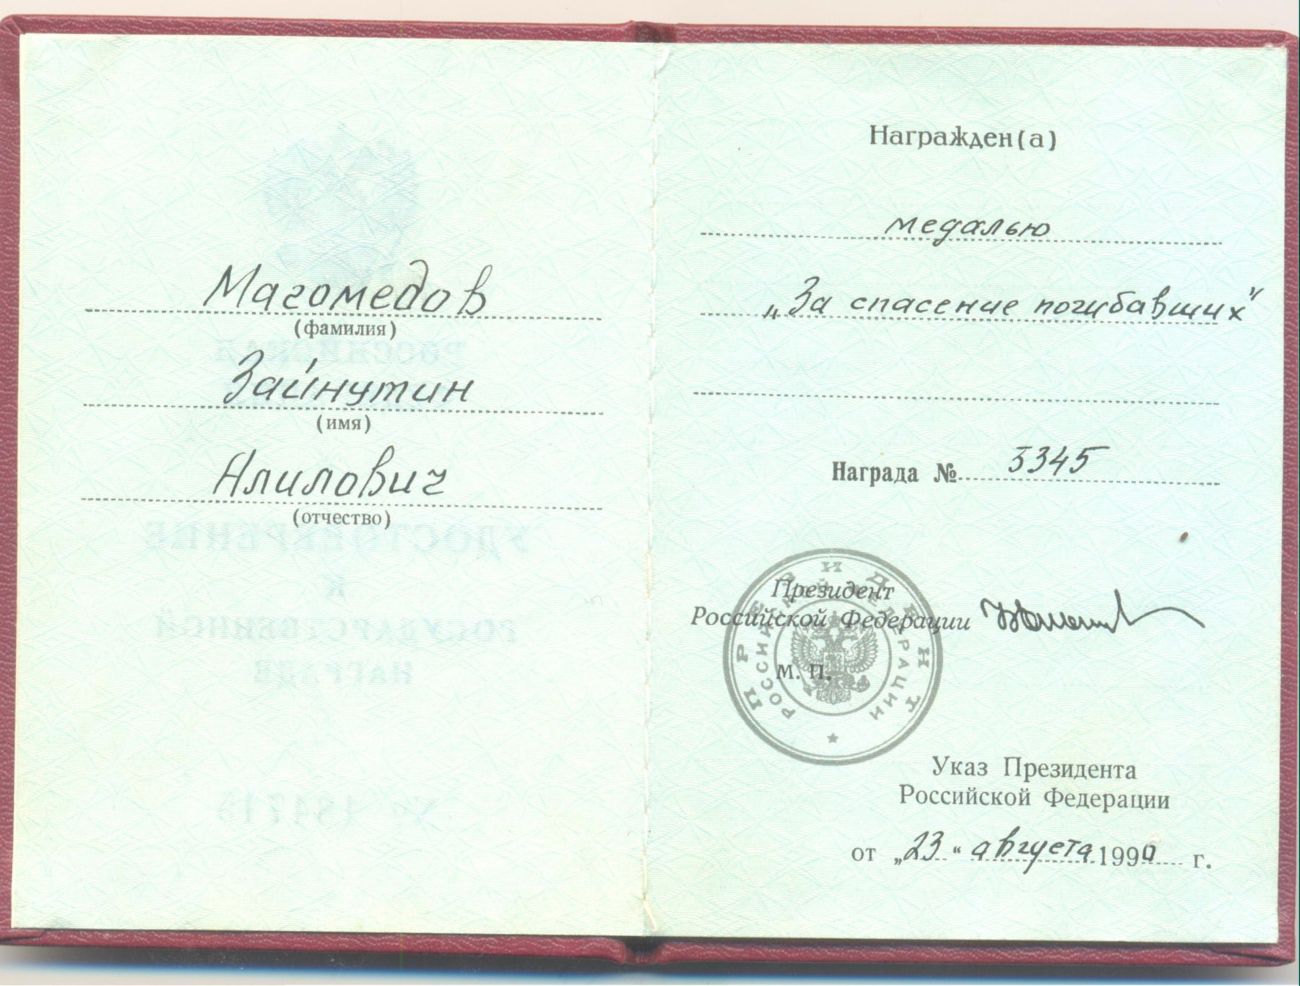 Магомедов
(фамилия)
Зайнутин
(имя)
Алилович
(отчество)
Награжден(а)
медалью
„За спасение погибавших"
Награда № 3345
ПРЕЗИДЕНТ
РОССИЙСКОЙ ФЕДЕРАЦИИ
Президент
Российской Федерации
М. П.
Указ Президента
Российской Федерации
от „23" августа 199 г.